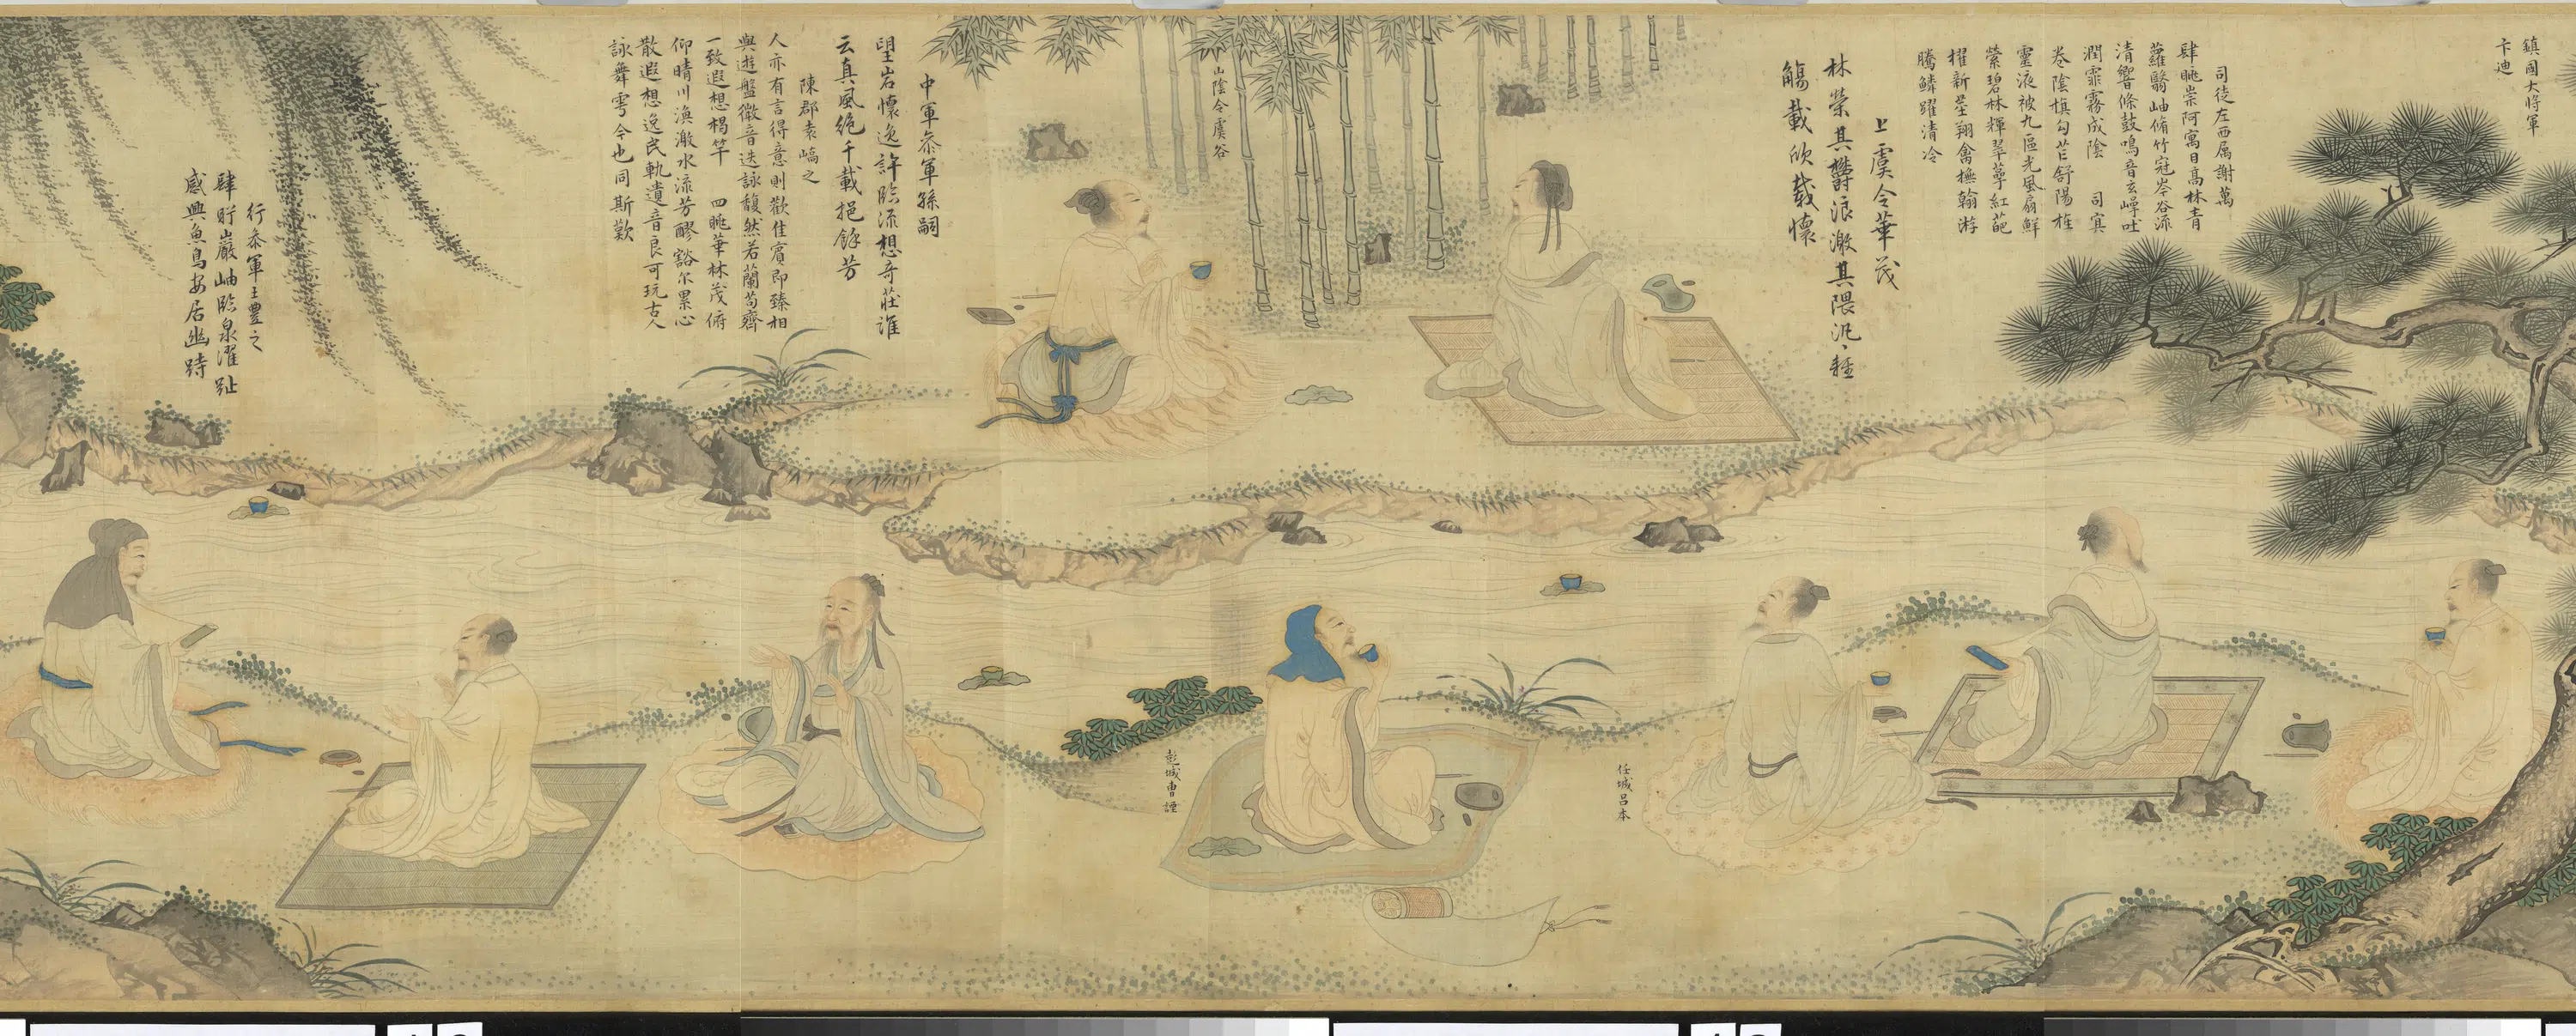 鎮國大將軍
卞迪
司徒左西属謝萬
肆眺崇阿寓目髙林青
蘿翳岫脩竹冠岑谷流
清響條鼓鳴音玄崿吐
潤霏霧成陰 司冥
卷陰旗勾芒舒陽旌
靈液被九區光風扇鮮
縈碧林輝翠萼紅葩
擢新莖翔禽撫翰游
騰鱗躍清泠
上虞令華茂
林榮其欝浪激其隈汎〻輕
觴載欣載懷
山陰令虞谷
中軍叅軍孫嗣
望岩懷逸許臨流想奇莊誰
云真風絶千載挹餘芳
陳郡袁嶠之
人亦有言得意則歡佳賓即臻相
與遊盤微音迭詠馥然若蘭苟齊
一致遐想揭竿 四眺華林茂俯
仰晴川渙激水流芳醪豁尔累心
散遐想逸民軌遺音良可玩古人
詠舞雩今也同斯歎
行叅軍王豐之
肆眄巖岫臨泉濯趾
感興魚鳥安居幽峙
任城呂本
彭城曹諲